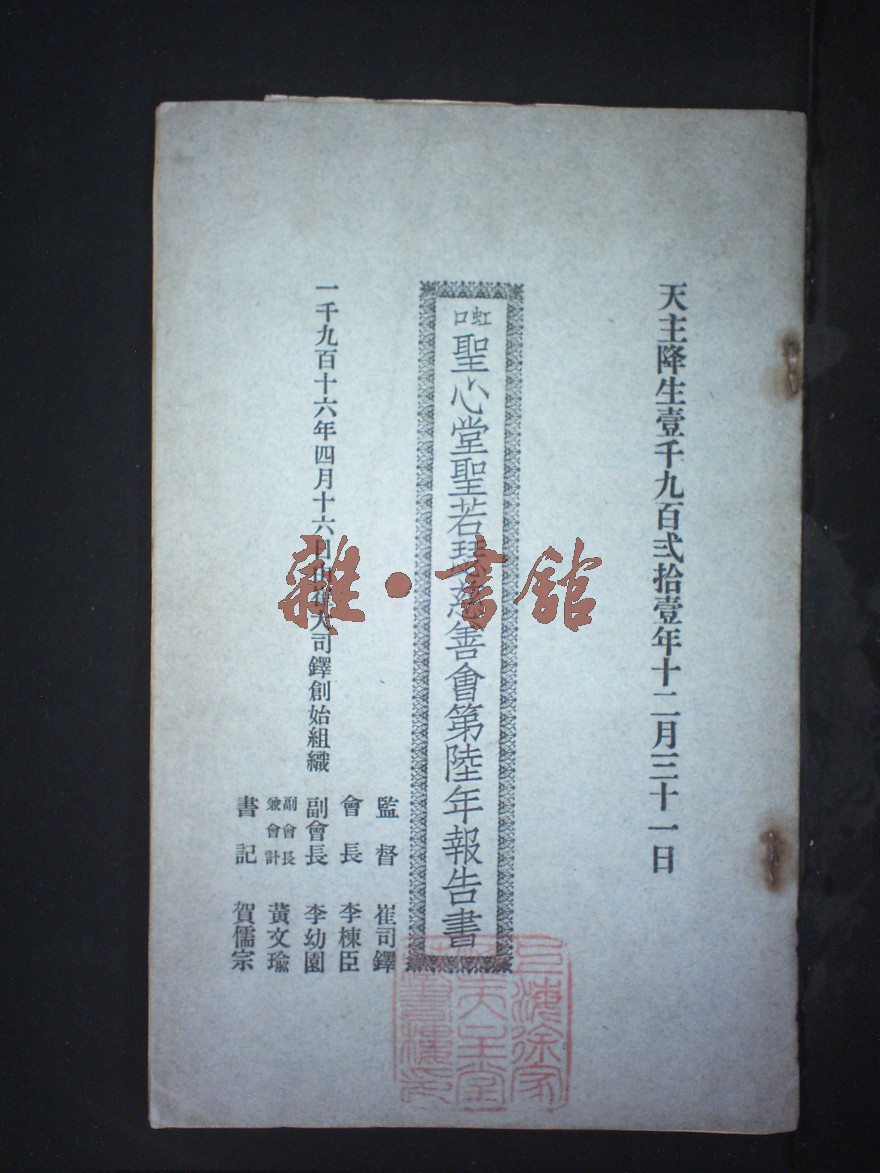 天主降生壹千九百弍拾壹年十二月三十一日
虹口
聖心堂聖若瑟慈善會第陸年報告書
監督 崔司鐸
會長 李棟臣
副會長 李幼園
副會長兼會計 黃文瑜
書記 賀儒宗
一千九百十六年四月十六日由崔大司鐸創始組織
雜·書館
上海徐家
天主堂
藏書樓